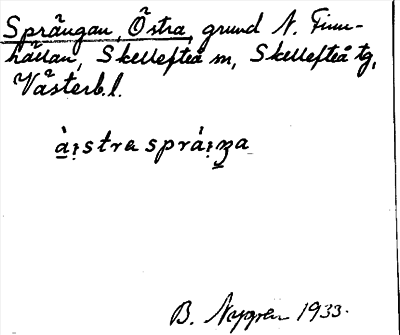 Sprängan, Östra, grund N. Finn-
hällan, Skellefteå m, Skellefteå tg,
Västerb. l.
B. Nygren 1933.